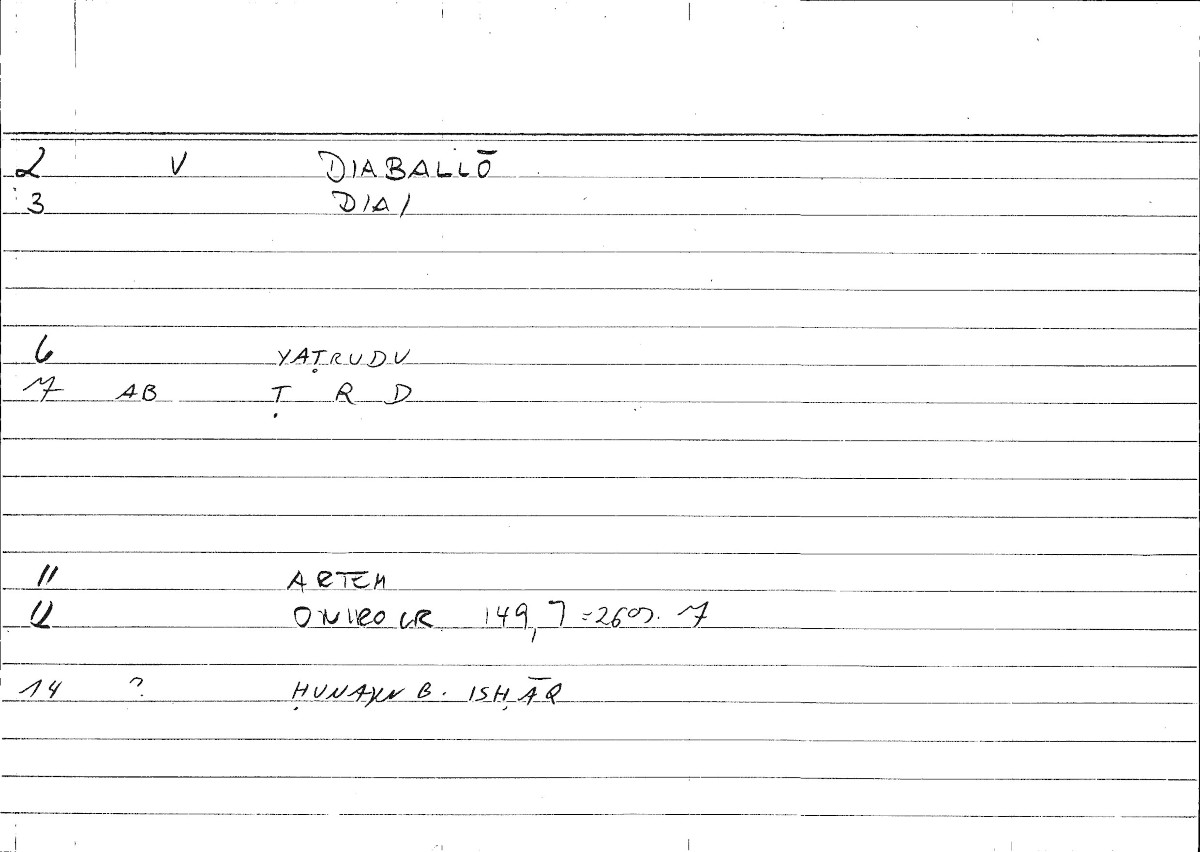 2 V DIABALLŌ
3 DIA/
6 YAṬRUDU
7 AB Ṭ R D
11 ARTEM
12 ONIROCR 149,7 =
14 ? ḤUNAYN B. ISḤĀQ